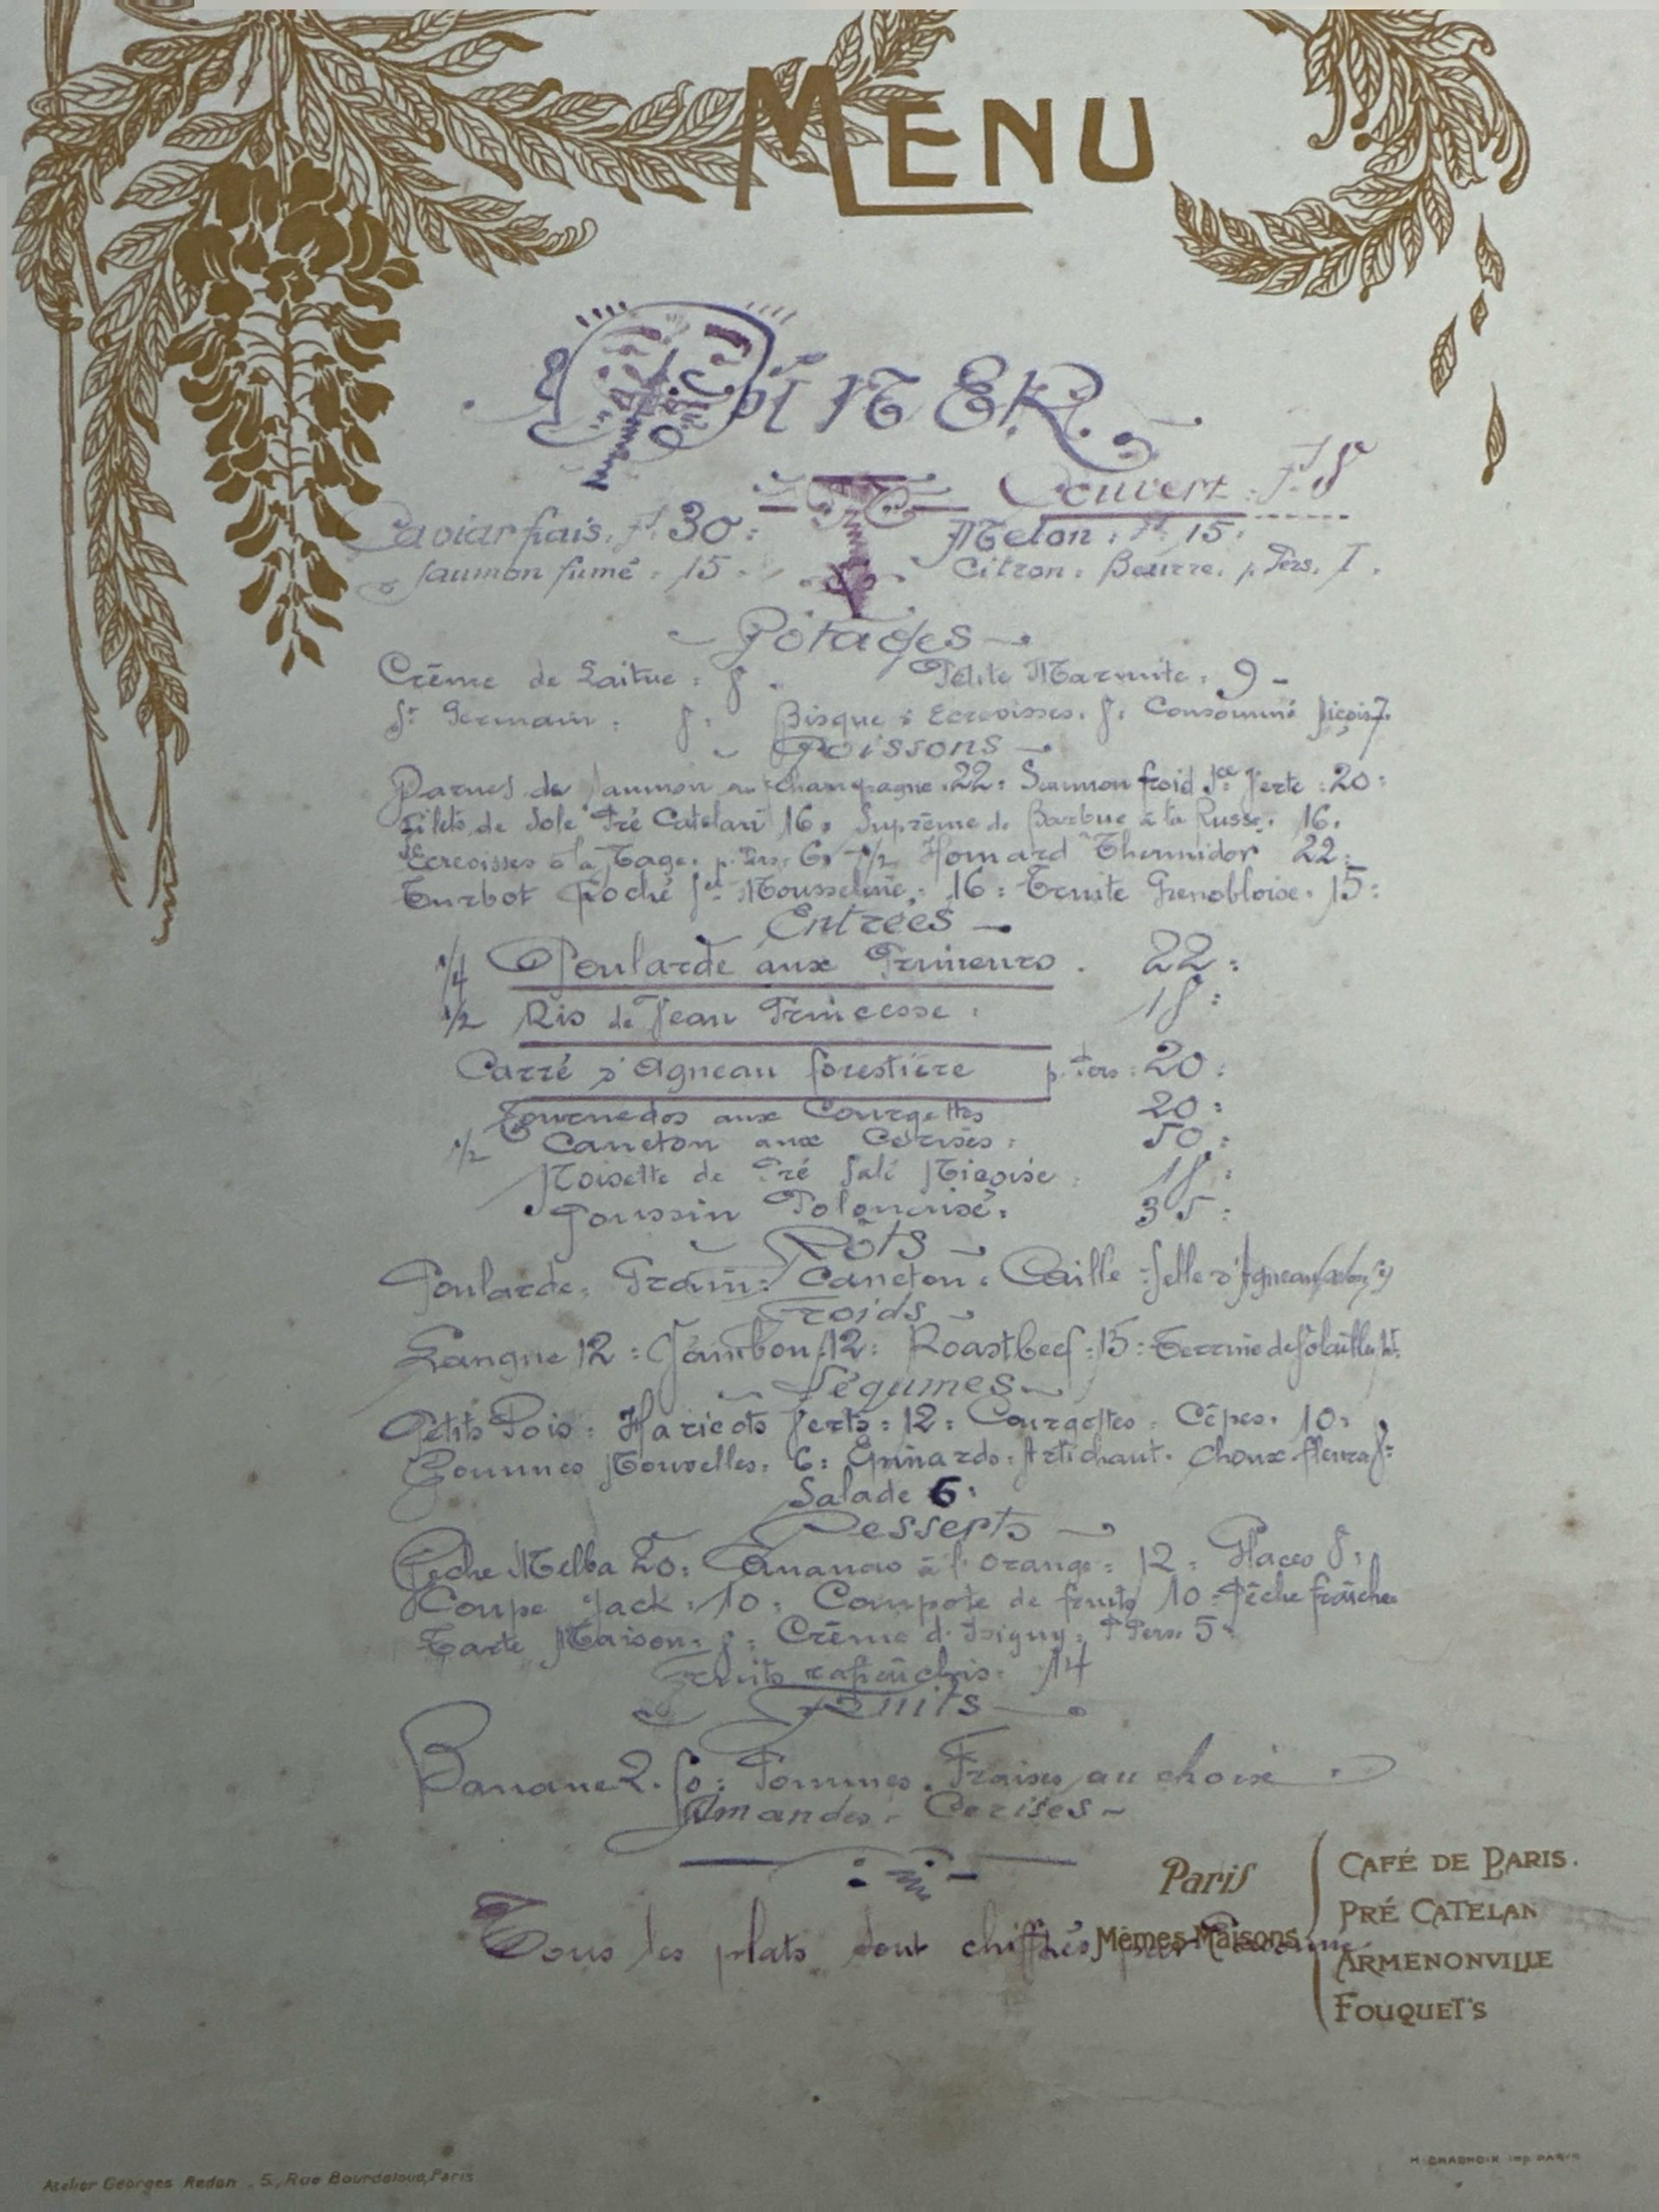 MENU
DÎNER.
Couvert. f. 8
Caviar frais. f. 30: Melon: f. 15:
Saumon fumé. 15. Citron. Beurre. p. Pers. 1.
Potages
Crème de Laitue: 8. Petite Marmite. 9-
St Germain: 8: Bisque Ecrevisses. 8: Consommé 7.
Poissons
Darnes de Saumon au Champagne. 22: Saumon froid Sce Verte: 20:
Filets de Sole Pré Catelan 16. Suprême de Barbue à la Russe. 16.
Ecrevisses à la Nage. p. Pers. 6. 1/2 Homard Thermidor 22:
Turbot Poché Sce Mousseline. 16: Truite Grenobloise. 15:
Entrées
1/4 Poularde aux Primeurs. 22:
1/2 Ris de Veau Princesse: 18:
Carré d'Agneau forestière p. Pers: 20:
Tournedos aux Courgettes 20:
1/2 Caneton aux Cerises: 50:
Noisette de Pré Salé Niçoise: 18:
Poussin Polonaise. 35:
Rôts
Poularde. Caneton. Caille Selle d'Agneau
Froids
Langue 12: Jambon: 12: Roastbeef: 15: Terrine de Volaille
Légumes
Petits Pois: Haricots Verts: 12: Courgettes. Cèpes. 10:
Pommes Nouvelles. 6: Epinards. Artichaut. Choux-fleurs 8:
Salade 6:
Desserts
Pêche Melba 20: Ananas à l'Orange: 12: Glaces 8:
Coupe Jack: 10: Compote de fruits 10: Pêche fraîche
Tarte Maison: 8: Crème d'Isigny: P Pers. 5:
Fruits rafraîchis: 14
Fruits
Banane 2.50: Pommes. Fraises au choix.
Amandes. Cerises-
Tous les plats sont chiffrés par Personne
Paris
Mêmes Maisons
CAFÉ DE PARIS.
PRÉ CATELAN
ARMENONVILLE
FOUQUET'S
Atelier Georges Redon. 5, Rue Bourdaloue, Paris
H. CHACHOIN IMP. PARIS